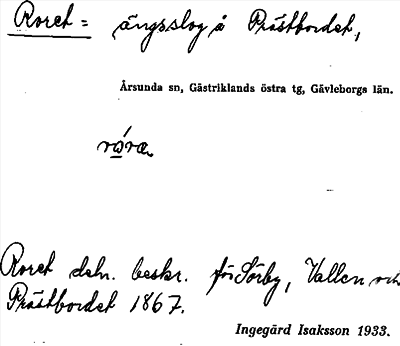 Roret = ängsslog å Prästbordet,
Årsunda sn, Gästriklands östra tg, Gävleborgs län.
Roret deln. beskr. för Sörby, Vallen och
Prästbordet 1867.
Ingegärd Isaksson 1933.